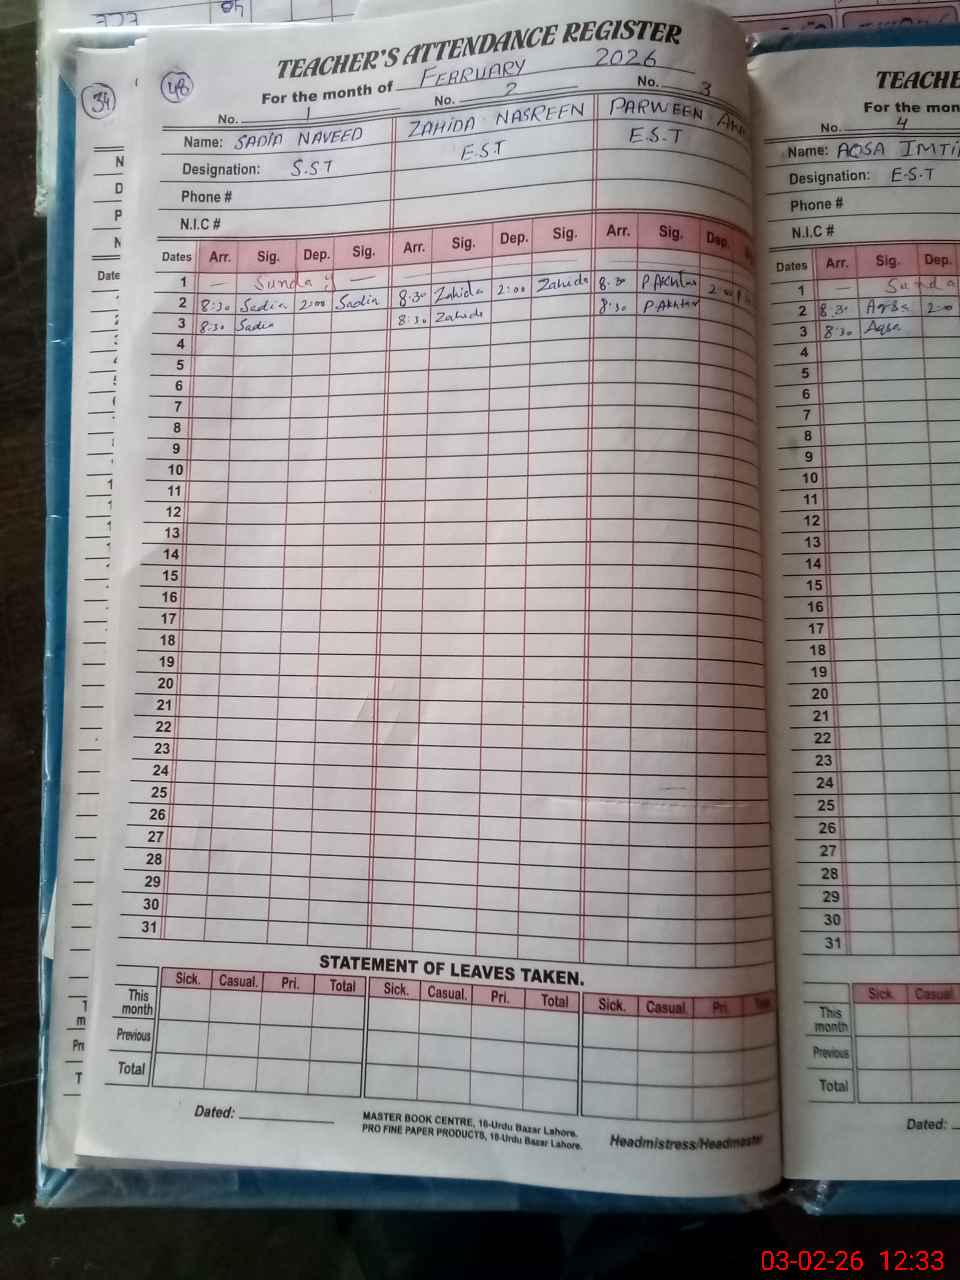 TEACHER'S ATTENDANCE REGISTER
For the month of FEBRUARY 2026
48
34
No. 1 No. 2 No. 3
Name: SADIA NAVEED ZAHIDA NASREEN PARWEEN
Designation: S.ST E.S.T E.S.T
Phone #
N.I.C #
Dates Arr. Sig. Dep. Sig. Arr. Sig. Dep. Sig. Arr. Sig. Dep.
1 — Sunday —
2 8:30 Sadia 2:00 Sadia 8:30 Zahida 2:00 Zahida 8:30 P.Akhtar
3 8:30 Sadia 8:30 Zahida 8:30 P.Akhtar
4
5
6
7
8
9
10
11
12
13
14
15
16
17
18
19
20
21
22
23
24
25
26
27
28
29
30
31
STATEMENT OF LEAVES TAKEN.
Sick. Casual. Pri. Total Sick. Casual. Pri. Total Sick. Casual. Pri. Total
This month
Previous
Total
Dated:
MASTER BOOK CENTRE, 16-Urdu Bazar Lahore.
PRO FINE PAPER PRODUCTS, 16-Urdu Bazar Lahore.
Headmistress/Headmaster
TEACHE
For the mon
No. 4
Name: AQSA IMTI
Designation: E.S.T
Phone #
N.I.C #
Dates Arr. Sig. Dep.
1 — Sunda
2 8:30 Aqsa 2:00
3 8:30 Aqsa
4
5
6
7
8
9
10
11
12
13
14
15
16
17
18
19
20
21
22
23
24
25
26
27
28
29
30
31
Sick. Casual.
This month
Previous
Total
Dated:
03-02-26 12:33